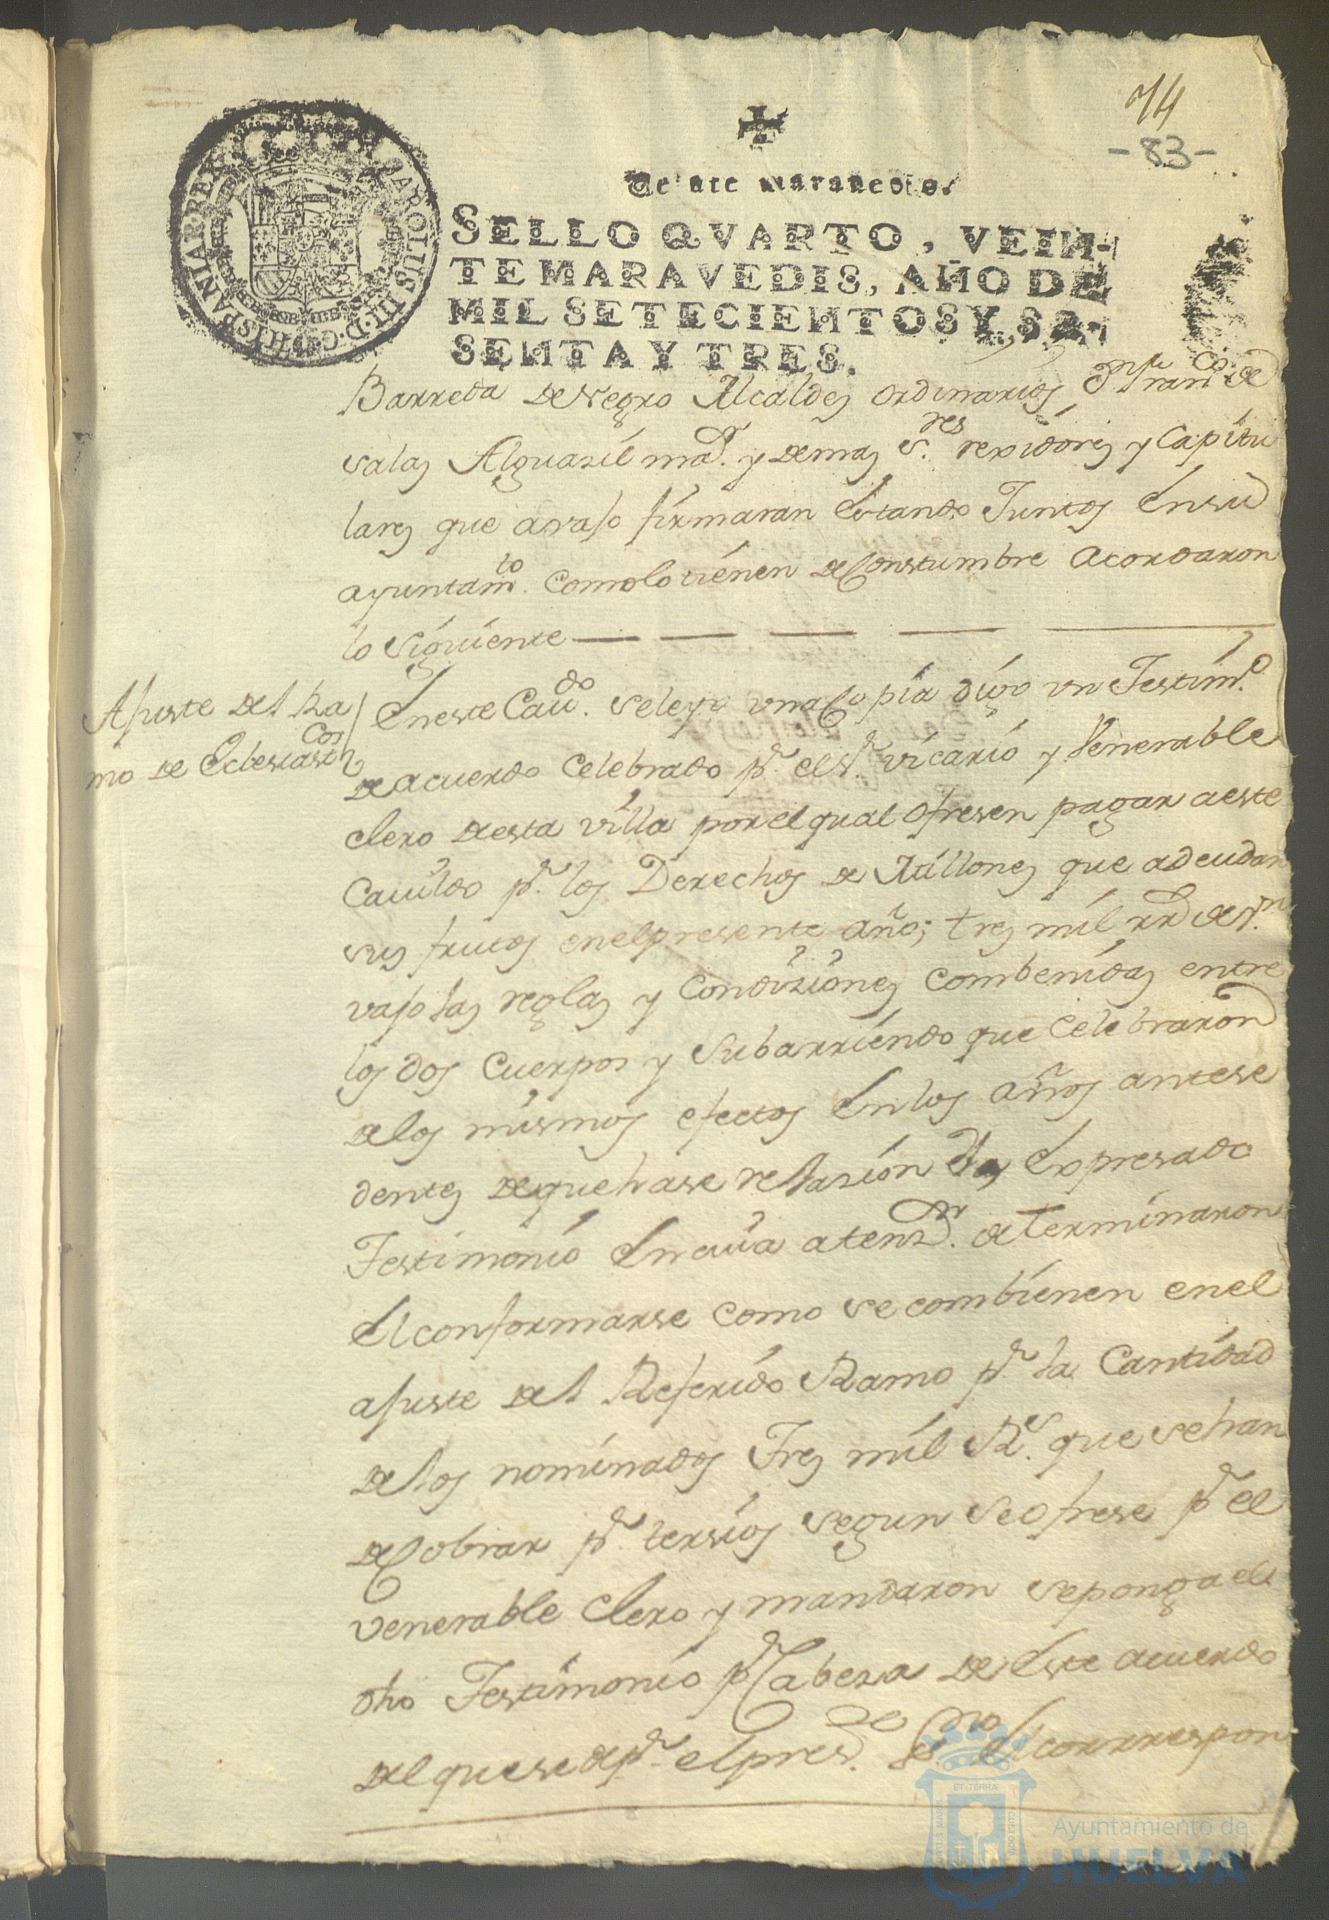 74
-83-
SELLO QVARTO, VEIN-
TE MARAVEDIS, AÑO DE
MIL SETECIENTOS Y SE-
SENTA Y TRES.
CAROLUS III D G HISPANIAR REX
Barreda de Negro Alcaldes ordinarios Dn Franco de
salas Alguasil mar. y demas Sres. rexidores y Capitu
lares que avajo firmaran Estando Juntos Ensu
ayuntamto. Comolo tienen de Constumbre acordaron
lo siguiente
Ajuste del Ra
mo de Eclesiastcos
Eneste Cavdo. seleyo una Copia digo un Testimo.
de acuerdo Celebrado pr. el Sr. vicario y Venerable
Clero desta villa por el qual ofresen pagar a este
Cavildo pr. los Derechos de Millones que adeudan
sus frutos enelpresente año; tres mil rrs de vn.
vajo las reglas y Condiziones Combenidas entre
los dos Cuerpos y Subarriendo que Celebraron
de los mismos efectos En los años antese
dentes de que hase relazion El Expresado
Testimonio En cuia atenzn. determinaron
El conformarse como se combienen en el
ajuste del Referido Ramo pr. la Cantidad
de los nominados Tres mil Rs. que se han
de Cobrar pr. tersios segun se ofrese pr El
venerable Clero y mandaron se ponga el
dho Testimonio pr Cabeza de Este acuerdo
del que se de pr. el presde. Essno El correspon
ET TERRÆ
Ayuntamiento de
HUELVA